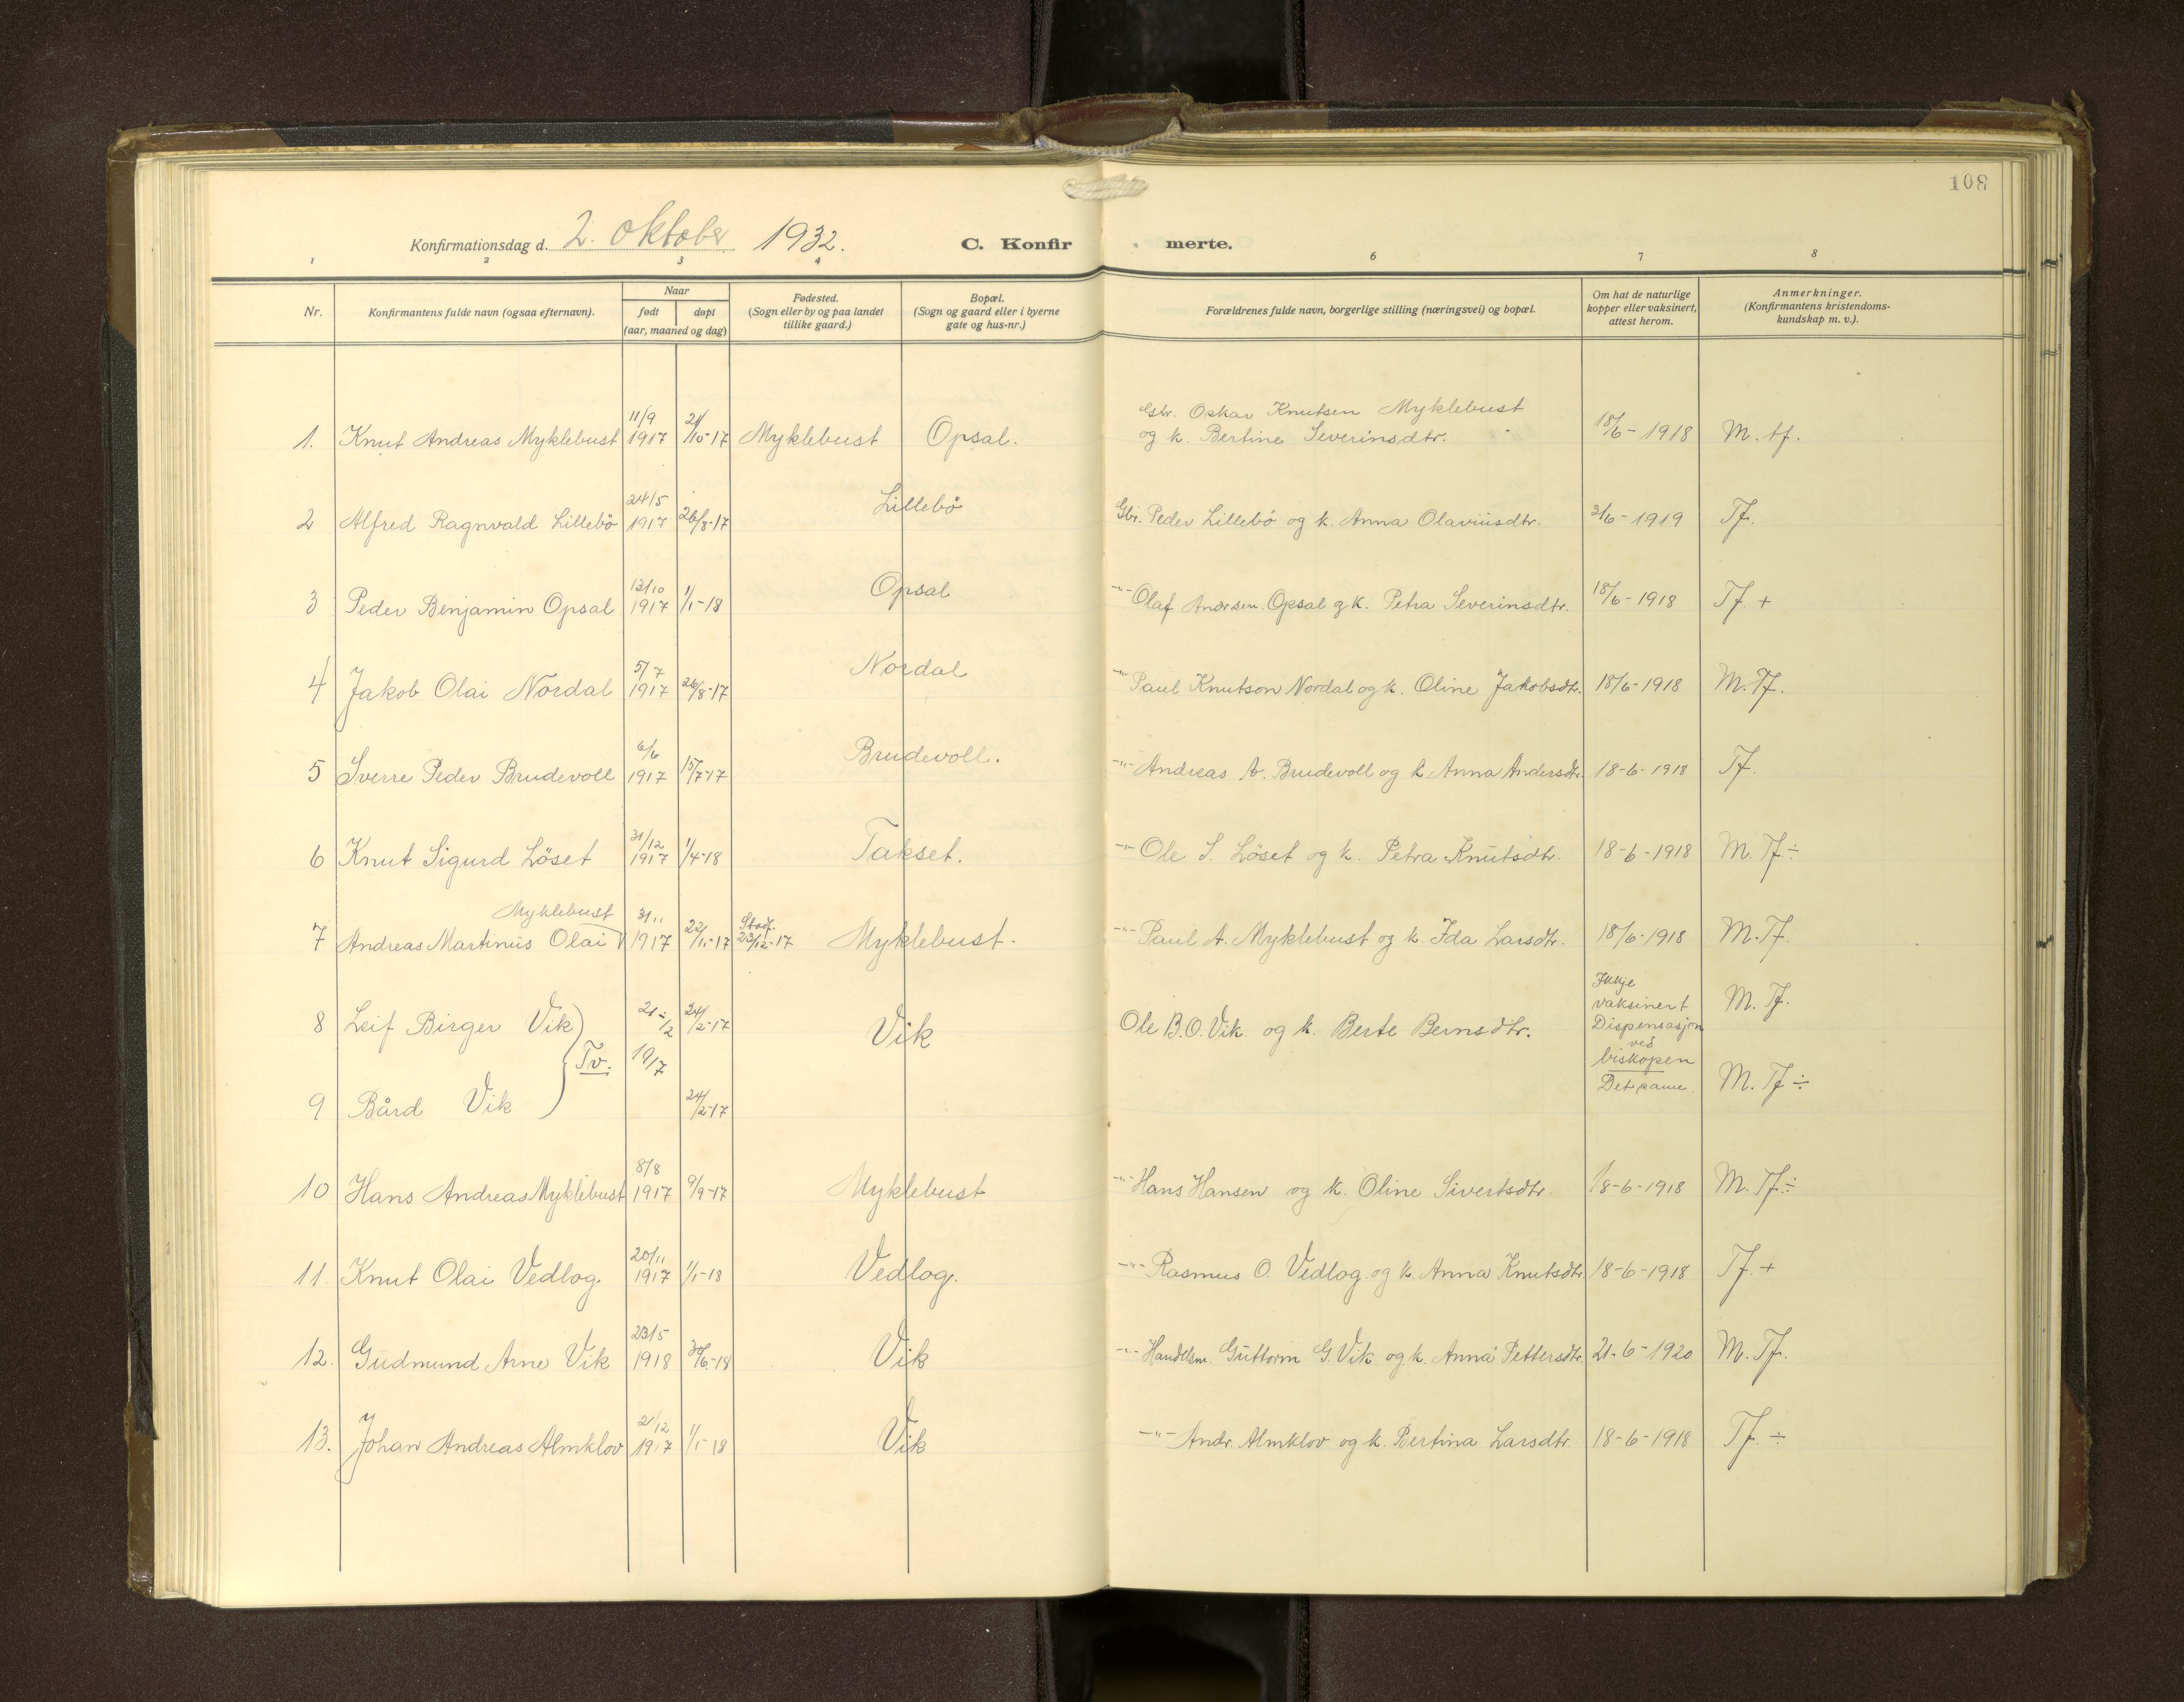 108
Konfirmationsdag d. 2. oktober 1932. C. Konfirmerte.
1 2 3 4 6 7 8
Nr. Konfirmantens fulde navn (ogsaa efternavn). Naar født døpt (aar, maaned og dag) Fødested. (Sogn eller by og paa landet tillike gaard.) Bopæl. (Sogn og gaard eller i byerne gate og hus-nr.) Forældrenes fulde navn, borgerlige stilling (næringsvei) og bopæl. Om hat de naturlige kopper eller vaksinert, attest herom. Anmerkninger. (Konfirmantens kristendoms-kundskap m. v.).
1. Knut Andreas Myklebust 11/9 1917 21/10-17 Myklebust Opsal. Gbr. Oskar Knutsen Myklebust
og k. Bertine Severinsdtr. 18/6-1918 M. tf.
2 Alfred Ragnvald Lillebö 24/5 1917 26/8-17 Lillebö Gbr. Peder Lillebö og k. Anna Olaviusdtr. 2/6-1919 Tf.
3 Peder Benjamin Opsal 13/10 1917 1/1-18 Opsal -"- Olaf Andersen Opsal og k. Petra Severinsdtr. 18/6-1918 Tf. +
4 Jakob Olai Nordal 5/7 1917 26/8-17 Nordal -"- Paul Knutson Nordal og k. Oline Jakobsdtr. 18/6-1918 M. Tf.
5 Sverre Peder Brudevoll 6/6 1917 15/7-17 Brudevoll. -"- Andreas A. Brudevoll og k. Anna Andersdtr. 18-6-1918 Tf.
6 Knut Sigurd Löset 31/12 1917 1/4-18 Takset. -"- Ole S. Löset og k. Petra Knutsdtr. 18-6-1918 M. Tf. ÷
Myklebust
7 Andreas Martinus Olai 3/11 1917 22/11-17 Stadf. 23/12-17 Myklebust. -"- Paul A. Myklebust og k. Ida Larsdtr. 18/6-1918 M. Tf.
8 Leif Birger Vik Tv. 21/2 1917 24/2-17 Vik Ole B. O. Vik og k. Berte Bernsdtr. Ikkje
vaksinert
Dispensasjon
ved
biskopen M. Tf.
9 Bård Vik 24/2-17 Det same. M. Tf ÷
10 Hans Andreas Myklebust 8/8 1917 9/9-17 Myklebust -"- Hans Hansen og k. Oline Sivertsdtr. 18-6-1918 M. Tf. ÷
11. Knut Olai Vedlog. 20/11 1917 1/1-18 Vedlog. -"- Rasmus O. Vedlog. og k. Anna Knutsdtr. 18-6-1918 Tf. +
12. Gudmund Arne Vik 23/5 1918 30/6-18 Vik -"- Handelsm. Guttorm G. Vik og k. Anna Pettersdtr. 21-6-1920 M. Tf.
13. Johan Andreas Almklov 2/12 1917 1/1-18 Vik -"- Andr. Almklov og k. Bertina Larsdtr. 18-6-1918 Tf. ÷